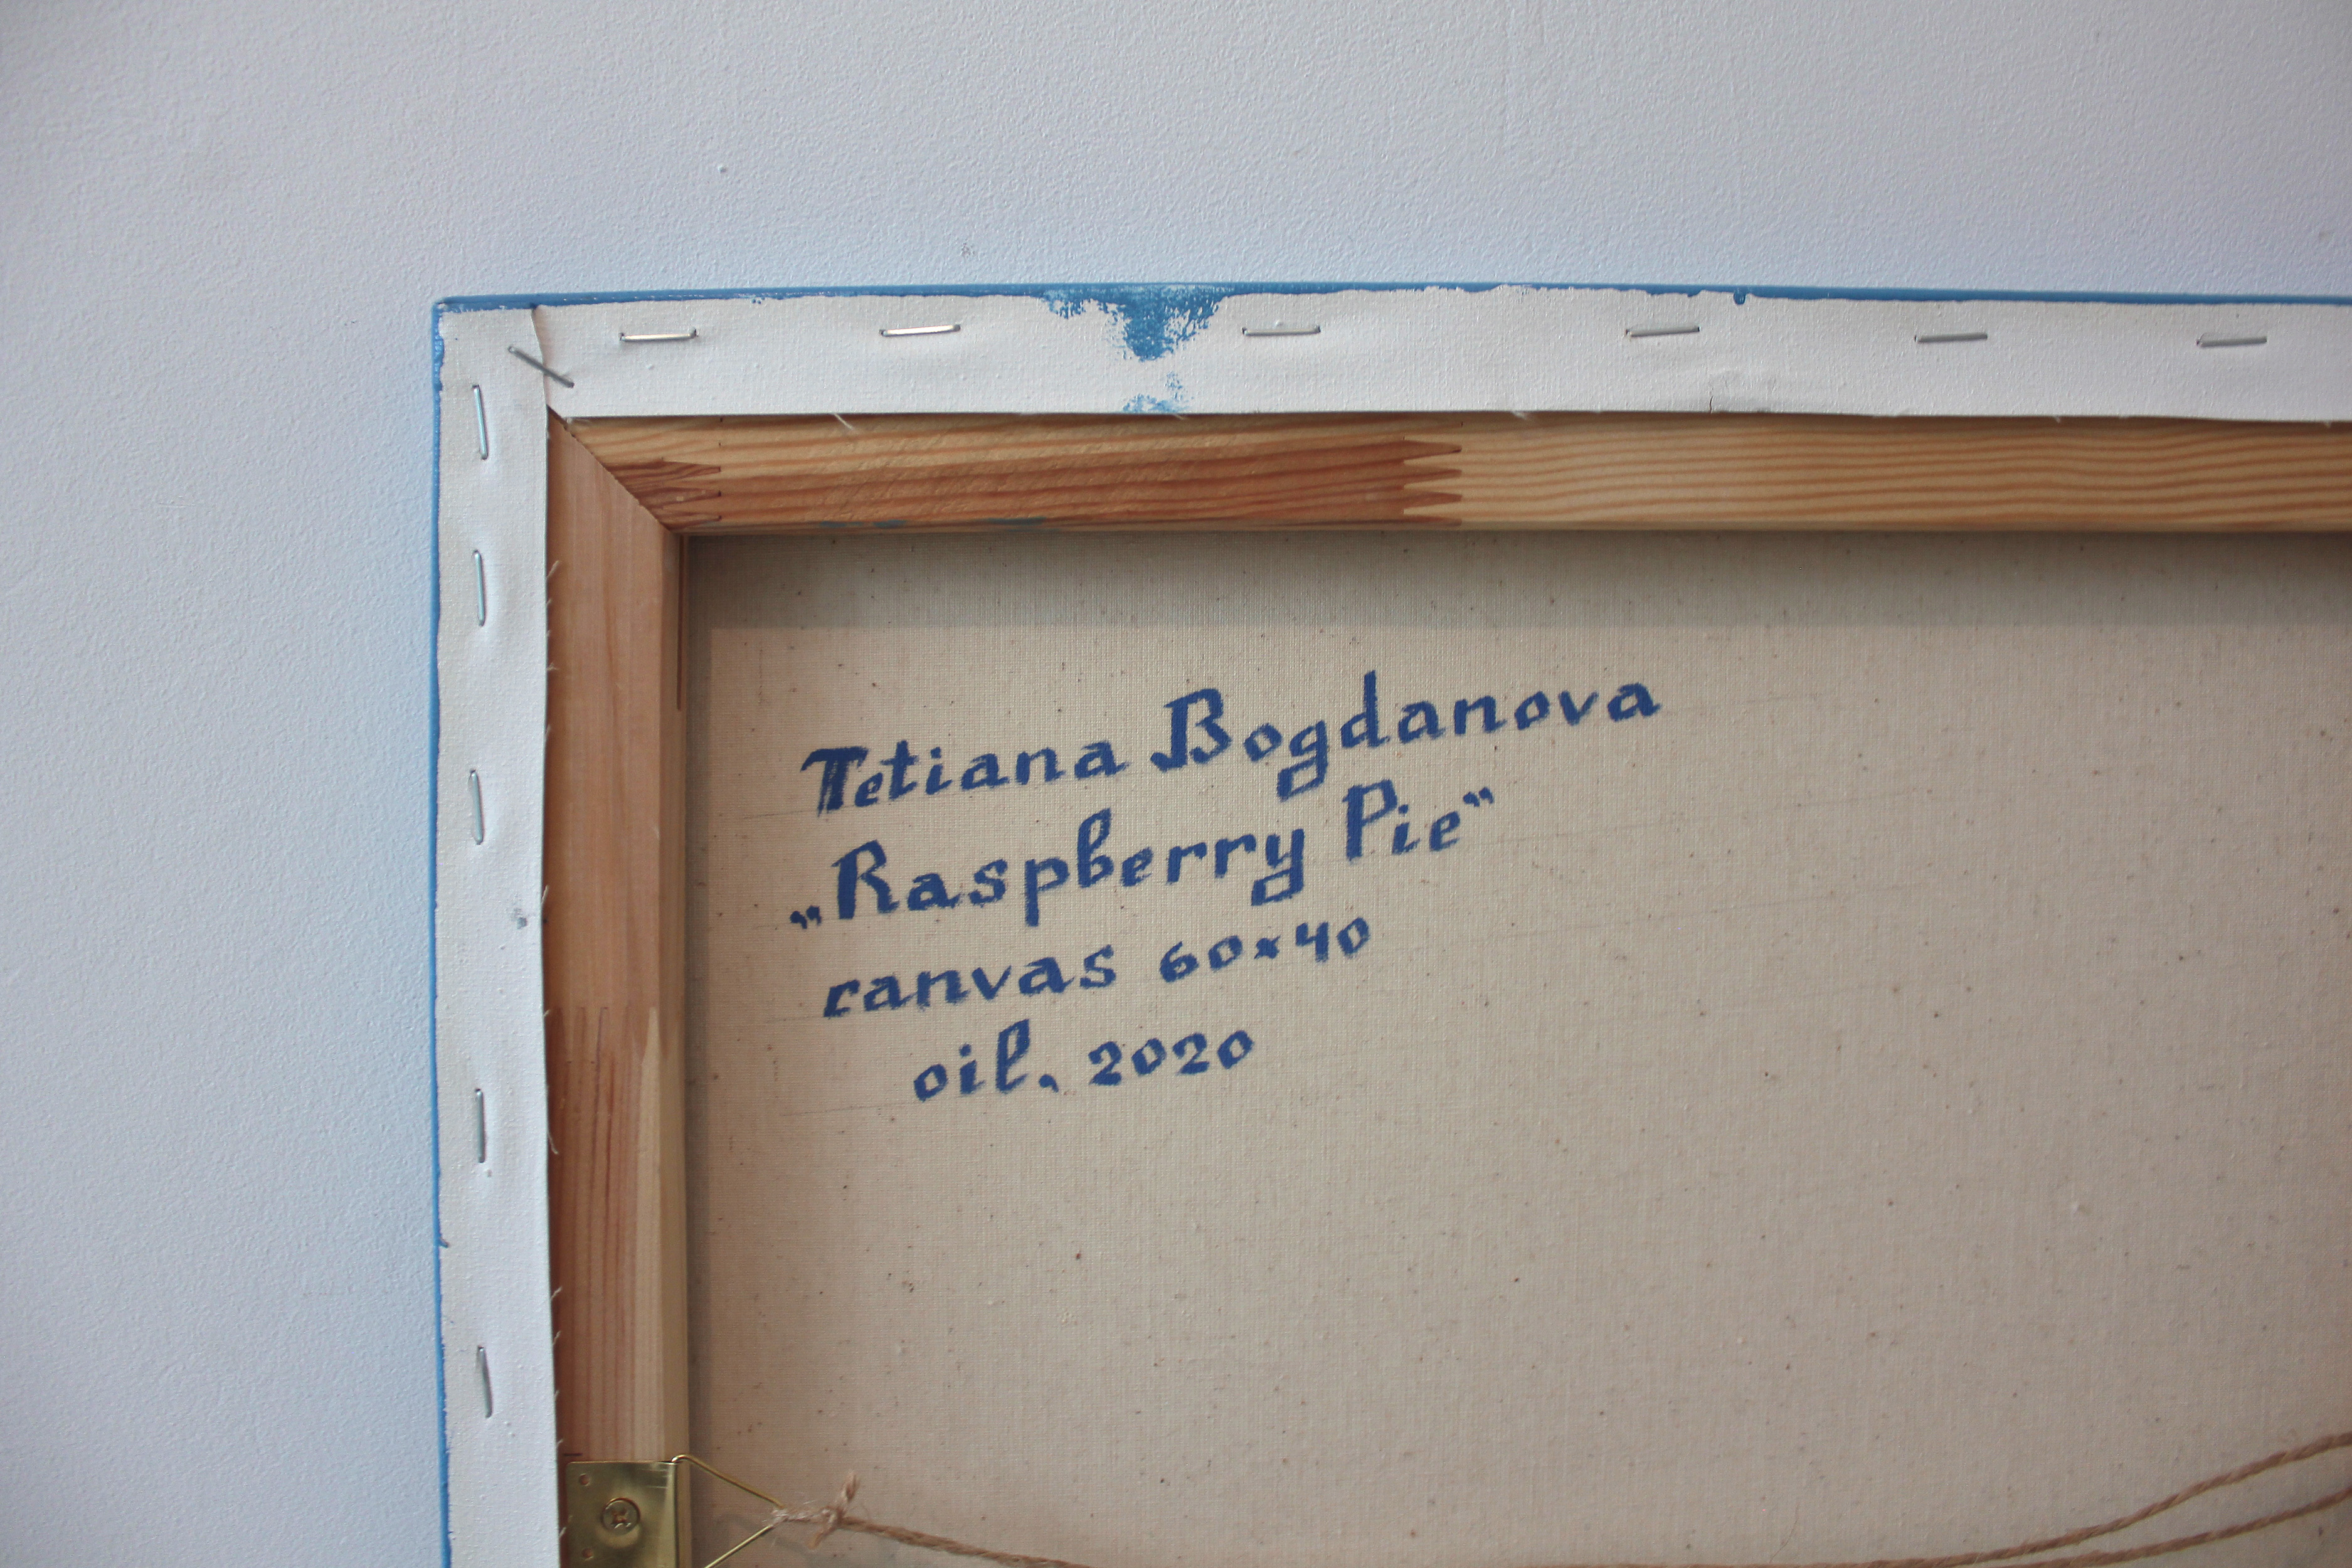 Tetiana Bogdanova
„Raspberry Pie“
canvas 60×40
oil, 2020